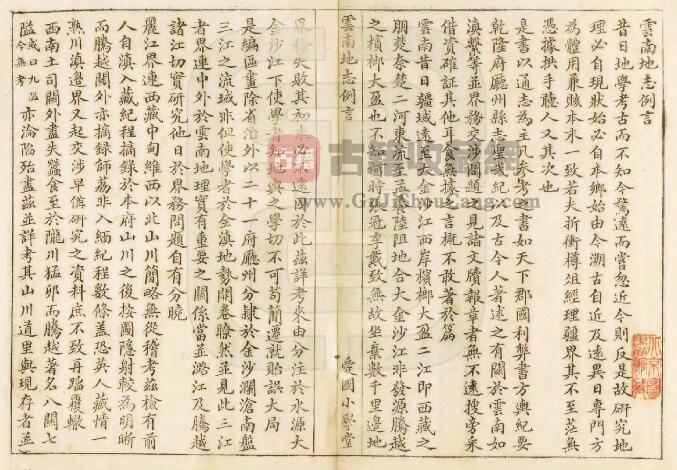 雲南地志例言
昔日地學考古而不知今騖遠而嘗忽近今則反是故研究地
理必自現狀始必自本鄉始由今溯古自近及遠異日專門方
為體用兼賅本末一致若夫折衝樽俎經理疆界其不至茫無
憑據拱手聽人又其次也
是書以通志為主凡參考之書如天下郡國利弊書方輿紀要
乾隆府廳州縣志聖武紀以及古今人著述之有關於雲南如
滇繫等並界務交涉問題之見諸文牘報章者無不逺搜旁采
借資確証其他耳食無據之言概不敢著於篇
雲南昔日疆域遠至大金沙江西岸檳榔大盈二江即西藏之
朋楚奈楚二河東流至孟養陸阻地合大金沙江非發源騰越
之檳榔大盈也不知何時冠李戴致無故坐棄數千里邊地
雲南地志例言
愛國小學堂
界務失敗其初未必不遠因於此茲詳考來由分注於水源大
金沙江下使學者知地輿之學切不可苟簡遷就貽誤大局
是編區畫除省治外以二十一府廳州分隸於金沙瀾滄南盤
三江之流域非但使學者於全滇地勢開卷瞭然並見此三江
者界連中外於雲南地理實有重要之關係當並潞江及騰越
諸江切實研究他日於界務問題自有分曉
麗江界連西藏中甸維西以北山川簡略無從稽考茲檢有前
人自滇入藏紀程摘錄於本府山川之後按圖隱射較為明晰
而騰越關外亦摘錄師荔扉入緬紀程數條蓋恐英人藏情一
熟川滇邊界又起交涉早儲研究之資料庶不致再蹈覆轍
西南土司關外盡失蠶食至於隴川猛卯而騰越著名八關七
隘或曰九隘今無考亦淪陷殆盡茲並詳考其山川道里與現存者並
古籍
古籍收藏網
www.GuJiShouCang.Com